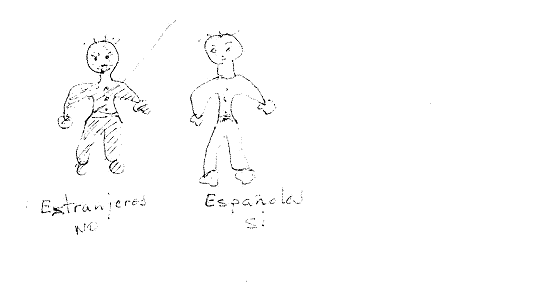 Estranjeros
NO
Españoles
Si